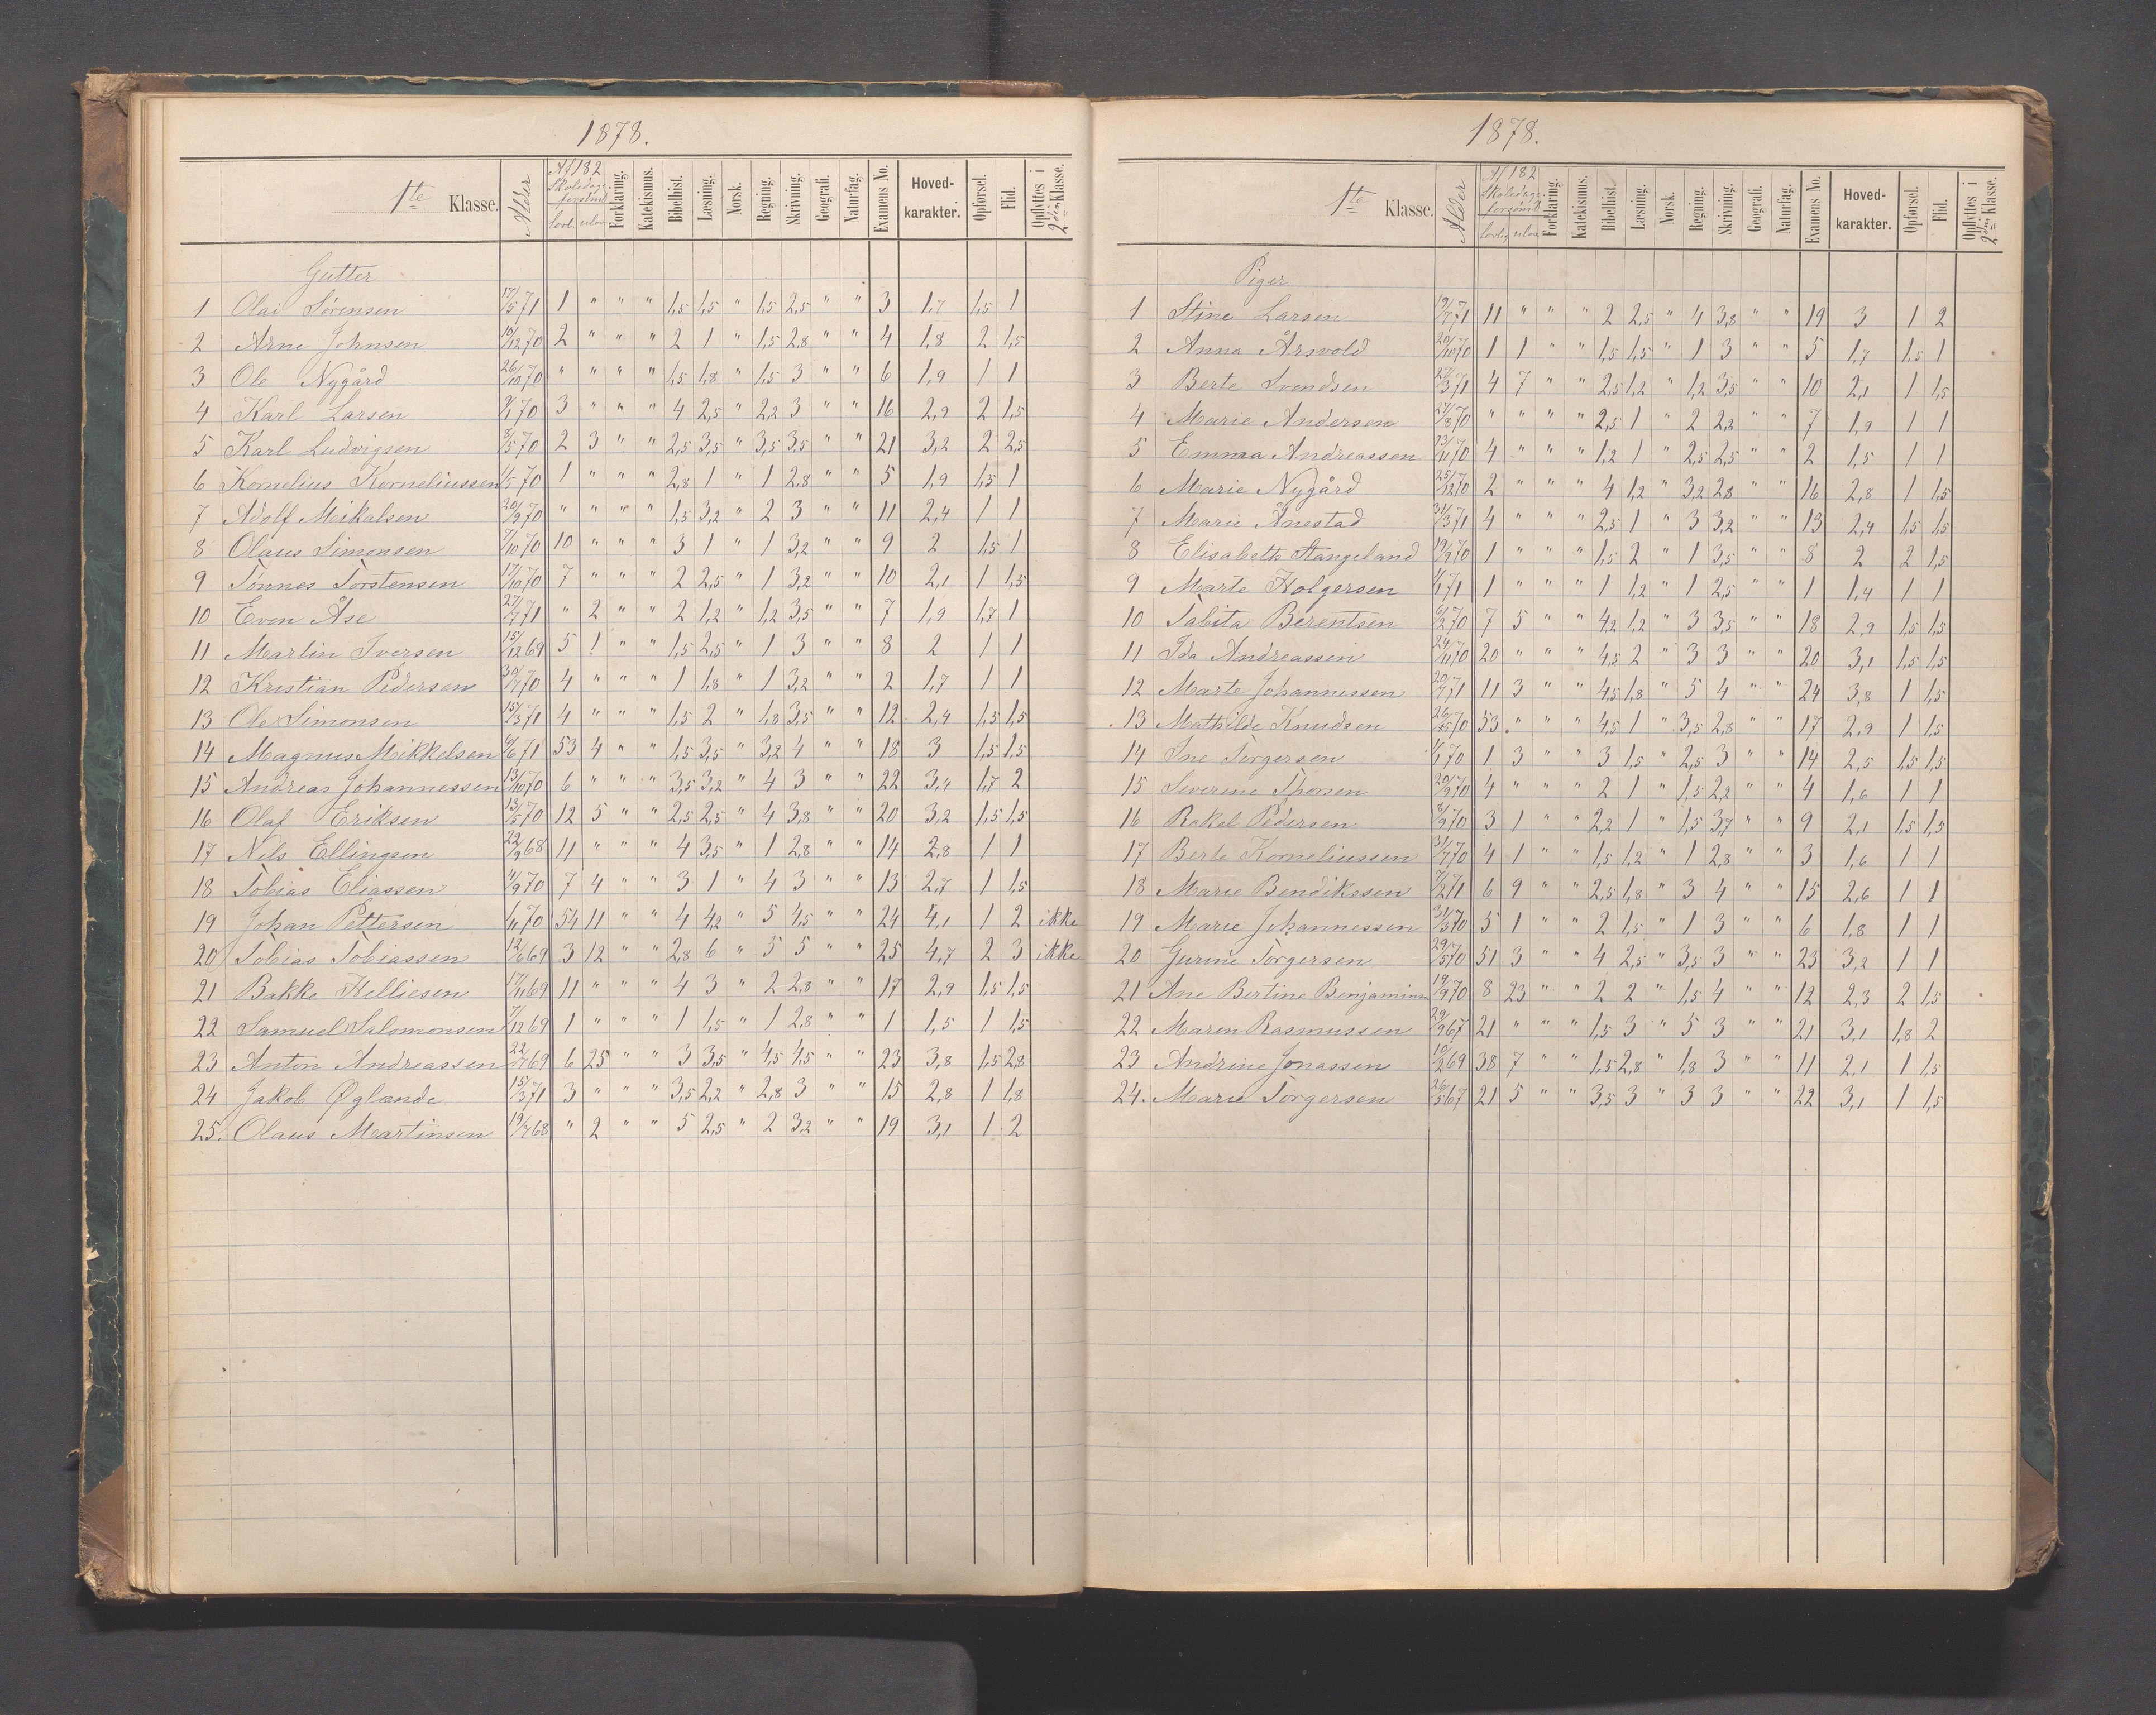 1878.
1te Klasse. Alder Af 182 Skoledage forsømt lovl. ulov. Forklaring. Katekismus. Bibelhist. Læsning. Norsk. Regning. Skrivning. Geografi. Naturfag. Examens No. Hoved-karakter. Opførsel. Flid. Opflyttes i 2den Klasse.
Gutter
1 Olai Sørensen 17/5 71 1 " " " 1,5 1,5 " 1,5 2,5 " " 3 1,7 1,5 1
2 Arne Johnsen 10/12 70 2 " " " 2 1 " 1,5 2,8 " " 4 1,8 2 1,5
3 Ole Nygård 26/10 70 " " " " 1,5 1,8 " 1,5 3 " " 6 1,9 1 1
4 Karl Larsen 9/1 70 3 " " " 4 2,5 " 2,2 3 " " 16 2,9 2 1,5
5 Karl Ludvigsen 3/5 70 2 3 " " 2,5 3,5 " 3,5 3,5 " " 21 3,2 2 2,5
6 Kornelius Korneliussen 1/5 70 1 " " " 2,8 1 " 1 2,8 " " 5 1,9 1,5 1
7 Adolf Mikalsen 20/9 70 " " " " 1,5 3,2 " 2 3 " " 11 2,4 1 1
8 Olaus Simonsen 7/10 70 10 " " " 3 1 " 1 3,2 " " 9 2 1,5 1
9 Tønnes Torstensen 17/10 70 7 " " " 2 2,5 " 1 3,2 " " 10 2,1 1 1,5
10 Even Åse 27/7 71 " 2 " " 2 1,2 " 1,2 3,5 " " 7 1,9 1,7 1
11 Martin Iversen 15/12 69 5 1 " " 1,5 2,5 " 1 3 " " 8 2 1 1
12 Kristian Pedersen 30/7 70 4 " " " 1 1,8 " 1 3,2 " " 2 1,7 1 1
13 Ole Simonsen 15/3 71 4 " " " 1,5 2 " 1,8 3,5 " " 12 2,4 1,5 1,5
14 Magnus Mikkelsen 6/6 71 53 4 " " 1,5 3,5 " 3,2 4 " " 18 3 1,5 1,5
15 Andreas Johannessen 13/10 70 6 " " " 3,5 3,2 " 4 3 " " 22 3,4 1,7 2
16 Olaf Eriksen 13/5 70 12 5 " " 2,5 2,5 " 4 3,8 " " 20 3,2 1,5 1,5
17 Nils Ellingsen 22/9 68 11 " " " 4 3,5 " 1 2,8 " " 14 2,8 1 1
18 Tobias Eliassen 4/9 70 7 4 " " 3 1 " 4 3 " " 13 2,7 1 1,5
19 Johan Pettersen 1/11 70 54 11 " " 4 4,2 " 5 4,5 " " 24 4,1 1 2 ikke
20 Tobias Tobiassen 12/6 69 3 12 " " 2,8 6 " 5 5 " " 25 4,7 2 3 ikke
21 Bakke Helliesen 17/11 69 11 " " " 4 3 " 2 2,8 " " 17 2,9 1,5 1,5
22 Samuel Salomonsen 7/12 69 1 " " " 1 1,5 " 1 2,8 " " 1 1,5 1 1,5
23 Anton Andreassen 22/7 69 6 25 " " 3 3,5 " 4,5 4,5 " " 23 3,8 1,5 2,8
24 Jakob Øglænde 15/3 71 3 " " " 3,5 2,2 " 2,8 3 " " 15 2,8 1 1,8
25. Olaus Martinsen 19/7 68 " 2 " " 5 2,5 " 2 3,2 " " 19 3,1 1 2
1878.
1te Klasse. Alder Af 182 Skoledage forsømt lovlig ulov. Forklaring. Katekismus. Bibelhist. Læsning. Norsk. Regning. Skrivning. Geografi. Naturfag. Examens No. Hoved-karakter. Opførsel. Flid. Opflyttes i 2den Klasse.
Piger
1 Stine Larsen 19/7 71 11 " " " 2 2,5 " 4 3,8 " " 19 3 1 2
2 Anna Årsvold 20/10 70 1 1 " " 1,5 1,5 " 1 3 " " 5 1,7 1,5 1
3 Berte Svendsen 27/3 71 4 7 " " 2,5 1,2 " 1,2 3,5 " " 10 2,1 1 1,5
4 Marie Andersen 27/8 70 " " " " 2,5 1 " 2 2,2 " " 7 1,9 1 1
5 Emma Andreassen 13/11 70 4 " " " 1,2 1 " 2,5 2,5 " " 2 1,5 1 1
6 Marie Nygård 25/12 70 2 " " " 4 1,2 " 3,2 2,8 " " 16 2,8 1 1,5
7 Marie Ånestad 31/3 71 4 " " " 2,5 1 " 3 3,2 " " 13 2,4 1,5 1,5
8 Elisabeth Stangeland 19/9 70 1 " " " 1,5 2 " 1 3,5 " " 8 2 2 1,5
9 Marte Holgersen 1/1 71 1 " " " 1 1,2 " 1 2,5 " " 1 1,4 1 1
10 Tabita Berentsen 6/2 70 7 5 " " 4,2 1,2 " 3 3,5 " " 18 2,9 1,5 1,5
11 Ida Andreassen 24/11 70 20 " " " 4,5 2 " 3 3 " " 20 3,1 1,5 1,5
12 Marte Johannessen 20/7 71 11 3 " " 4,5 1,8 " 5 4 " " 24 3,8 1 1,5
13 Mathilde Knudsen 26/5 70 53 " " " 4,5 1 " 3,5 2,8 " " 17 2,9 1 1,5
14 Ine Torgersen 1/1 70 1 3 " " 3 1,5 " 2,5 3 " " 14 2,5 1,5 1,5
15 Severine Thorsen 20/9 70 4 " " " 2 1 " 1,5 2,2 " " 4 1,6 1 1
16 Rakel Pedersen 8/9 70 3 1 " " 2,2 1 " 1,5 3,7 " " 9 2,1 1,5 1,5
17 Berte Korneliussen 31/7 70 4 1 " " 1,5 1,2 " 1 2,8 " " 3 1,6 1 1
18 Marie Bendiksen 7/2 71 6 9 " " 2,5 1,8 " 3 4 " " 15 2,6 1 1
19 Marie Johannessen 31/5 70 5 1 " " 2 1,5 " 1 3 " " 6 1,8 1 1
20 Gurine Torgersen 29/5 70 51 3 " " 4 2,5 " 3,5 3 " " 23 3,2 1 1
21 Ane Bertine Benjaminsen 19/9 70 8 23 " " 2 2 " 1,5 4 " " 12 2,3 2 1,5
22 Maren Rasmussen 29/9 67 21 " " " 1,5 3 " 5 3 " " 21 3,1 1,8 2
23 Andrine Jonassen 10/2 69 38 7 " " 1,5 2,8 " 1,8 3 " " 11 2,1 1 1,5
24. Marie Torgersen 26/5 67 21 5 " " 3,5 3 " 3 3 " " 22 3,1 1 1,5